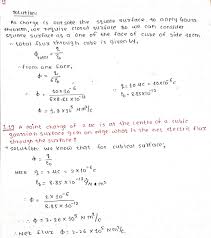 Solution:
As charge is outside the square surface, to apply Gauss
theorem, we require closed surface so we can consider
square surface as a one of the face of cube of side 10cm
- total flux through cube is given by,
ϕ = q/ε₀
- from one face,
ϕ = q/6ε₀
ϕ = 10×10⁻⁶ / 6×8.85×10⁻¹²
q = 10 μC = 10×10⁻⁶ C
ε₀ = 8.85×10⁻¹²
∴ ϕ = 1.9×10⁵ Nm²/C
A point charge of 2 μc is at the centre of a cubic
gaussian surface 9cm on edge. What is the net electric flux
through the surface?
Solution: We know that for cubical surface,
ϕ = q/ε₀
Here q = 2 μC = 2×10⁻⁶ C
ε₀ = 8.85×10⁻¹²
∴ ϕ = 2×10⁻⁶ / 8.85×10⁻¹²
∴ ϕ = 2.26×10⁵ Nm²/C
∴ Net flux ϕ = 2.26×10⁵ Nm²/C